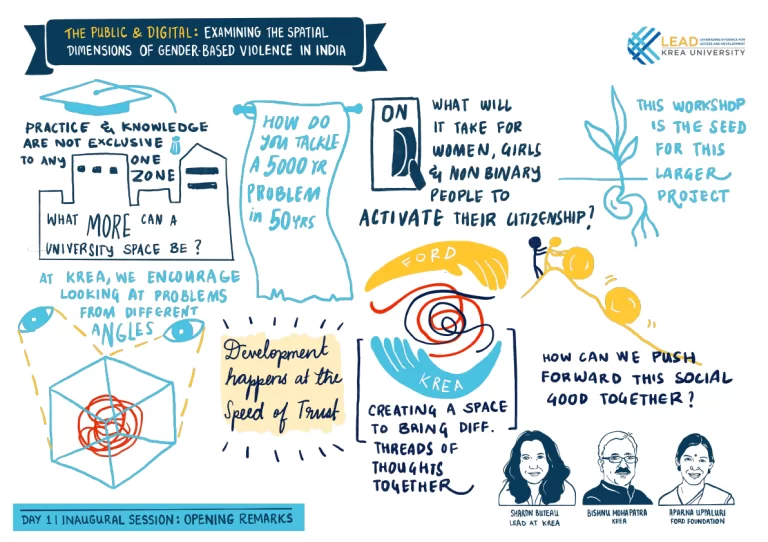 THE PUBLIC & DIGITAL: EXAMINING THE SPATIAL
DIMENSIONS OF GENDER-BASED VIOLENCE IN INDIA
LEAD
LEVERAGING EVIDENCE FOR
ACCESS AND DEVELOPMENT
KREA UNIVERSITY
PRACTICE & KNOWLEDGE
ARE NOT EXCLUSIVE
TO ANY ONE
ZONE
WHAT MORE CAN A
UNIVERSITY SPACE BE?
HOW DO
YOU TACKLE
A 5000 YR
PROBLEM
in 50 YRS
ON
WHAT WILL
IT TAKE FOR
WOMEN, GIRLS
& NON BINARY
PEOPLE TO
ACTIVATE THEIR CITIZENSHIP?
THIS WORKSHOP
IS THE SEED
FOR THIS
LARGER
PROJECT
AT KREA, WE ENCOURAGE
LOOKING AT PROBLEMS
FROM DIFFERENT
ANGLES
Development
happens at the
Speed of Trust
FORD
KREA
CREATING A SPACE
TO BRING DIFF.
THREADS OF
THOUGHTS
TOGETHER
HOW CAN WE PUSH
FORWARD THIS SOCIAL
GOOD TOGETHER?
SHARON BUTEAU
LEAD AT KREA
BISHNU MOHAPATRA
KREA
APARNA UPPALURI
FORD FOUNDATION
DAY 1 | INAUGURAL SESSION: OPENING REMARKS